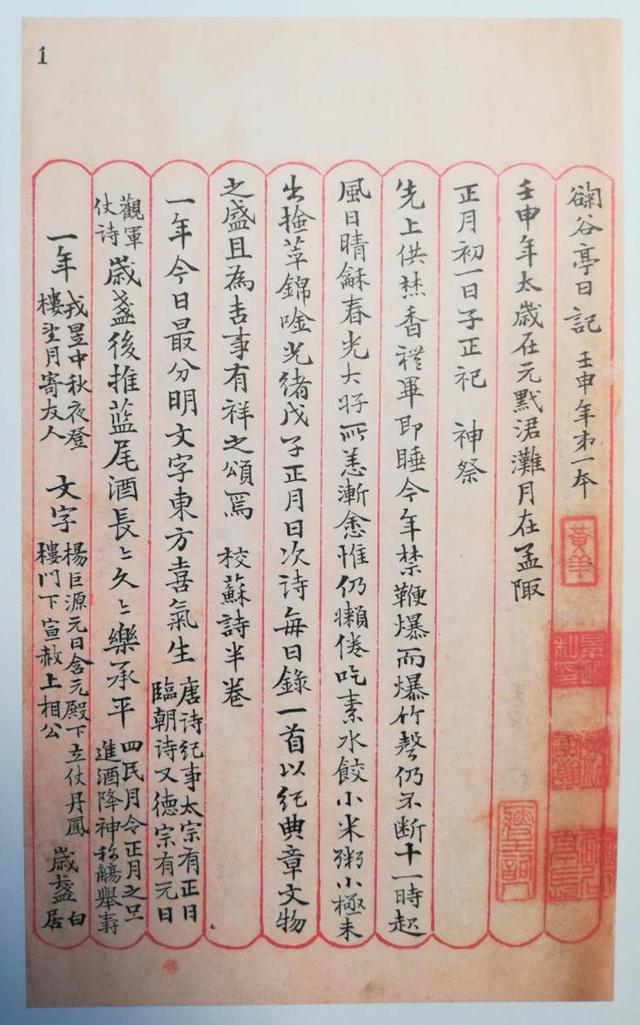 1
蘜谷亭日記 壬申年第一本
壬申年太歲在元默涒灘月在孟陬
正月初一日子正祀 神祭
先上供焚香禮畢即睡今年禁鞭爆而爆竹聲仍不斷十一時起
風日晴龢春光大好所恙漸愈惟仍懶倦吃素水餃小米粥小極未
出撿萃錦唫光緒戊子正月日次詩每日錄一首以紀典章文物
之盛且為吉事有祥之頌焉 校蘇詩半卷
一年今日最分明文字東方喜氣生 唐詩紀事太宗有正日
臨朝詩又德宗有元日
觀軍
仗詩 歲盞後推藍尾酒長〻久〻樂承平 四民月令正月之旦
進酒降神称觴舉壽
一年 戎昱中秋夜登
樓望月寄友人 文字 楊巨源元日含元殿下立仗丹鳳
樓門下宣赦上相公 歲盞 白
居
黃羊